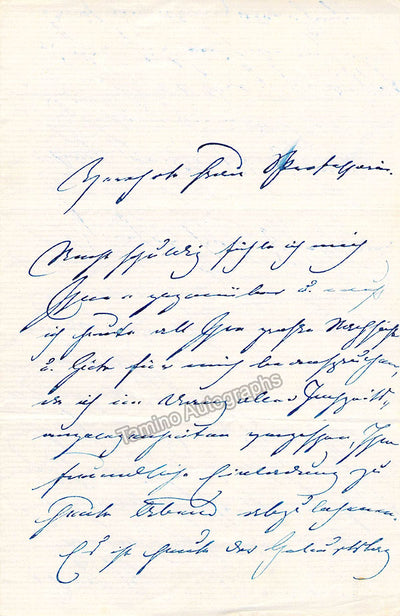 Verehrte Frau Professorin.
Recht schuldig fühle ich mich
Ihnen gegenüber u. muß
ich heute all Ihre große Nachsicht
u. Güte für mich beanspruchen,
da ich in
Tamino Autographs
angelegenheiten vergessen, Ihre
freundliche Einladung zu
heute Abend abzulehnen.
Es ist heute der Geburtstag